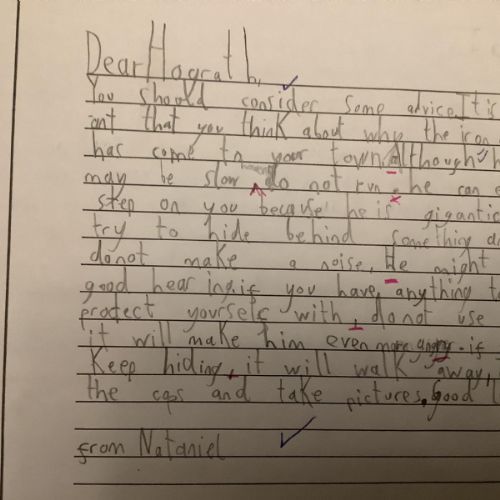 Dear Hograth,
You should consider some advice. It i
ant that you think about why the iron
has come to your town. Although h
may be slow however do not run. he can
step on you because he is gigantic
try to hide behind something a
donot make a noise, He might
good hearing. if you have anything t
protect yourself with, do not use
it will make him even more angry. if
Keep hiding, it will walk away,
the cops and take pictures. Good l
from Nataniel